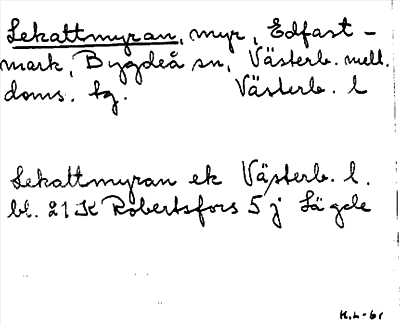 Lekattmyran, myr, Edfast-
mark, Bygdeå sn, Västerb. mell.
doms. tg. Västerb. l
Lekattmyran ek Västerb. l.
bl. 21 K Robertsfors 5 j Lägde
K.L-61